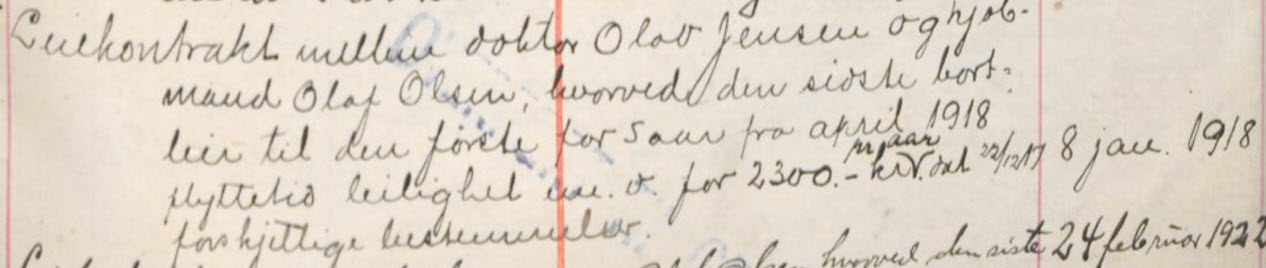 Leiekontrakt mellem doktor Olav Jensen og kjøb-
mand Olaf Olsen, hvorved den sidste bort-
leier til den første for 5 aar fra april 1918
flyttetid leilighet m. v. for 2300.- kr. pr. aar dat 22/12 17 8 jan. 1918
forskjellige bestemmelser.
hvorved den siste 24 februar 1922